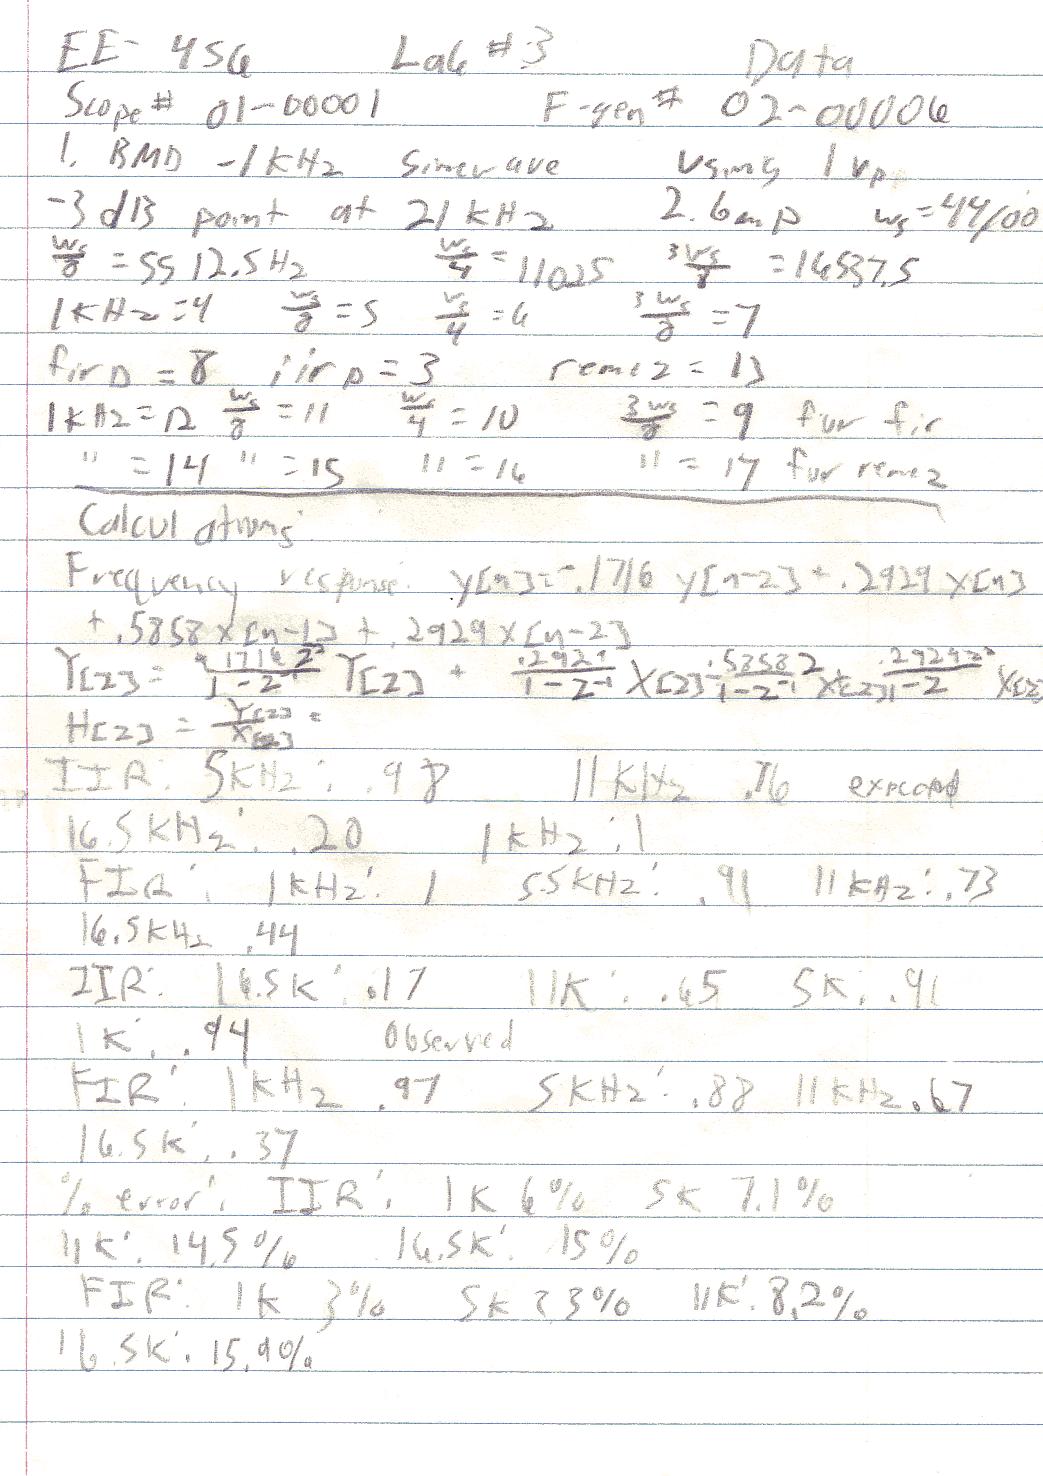 EE-456 Lab #3 Data
Scope# 01-00001 F-gen# 02-00006
1. BMD -1kHz Sinewave Using 1 Vp
-3dB point at 21kHz 2.6 ws=44100
ws/8 = 5512.5Hz ws/4 = 11025 3ws/8 = 16537.5
1kHz=4 ws/8 = 5 ws/4 = 6 3ws/8 = 7
firD = 8 iirD = 3 remez = 13
1kHz=12 ws/8 = 11 ws/4 = 10 3ws/8 = 9 for fir
" = 14 " = 15 " = 16 " = 17 for remez
Calculations:
Frequency response: y[n]=-.1716 y[n-2]+.2929x[n]
+.5858x[n-1]+.2929x[n-2]
Y[z]= Y[z] + X[z] X[z] X[z]
H[z] = Y[z]/X[z] =
IIR: 5kHz: .98 11kHz .76 expected
16.5kHz: .20 1kHz: 1
FIR: 1kHz: 1 5.5kHz: .91 11kHz: .73
16.5kHz .44
IIR: 16.5k: .17 11k: .65 5k: .91
1k: .94 Observed
FIR: 1kHz .97 5kHz: .88 11kHz .67
16.5k: .37
% error: IIR: 1k 6% 5k 7.1%
11k: 14.5% 16.5k: 15%
FIR: 1k 3% 5k 3.3% 11k: 8.2%
16.5k: 15.9%